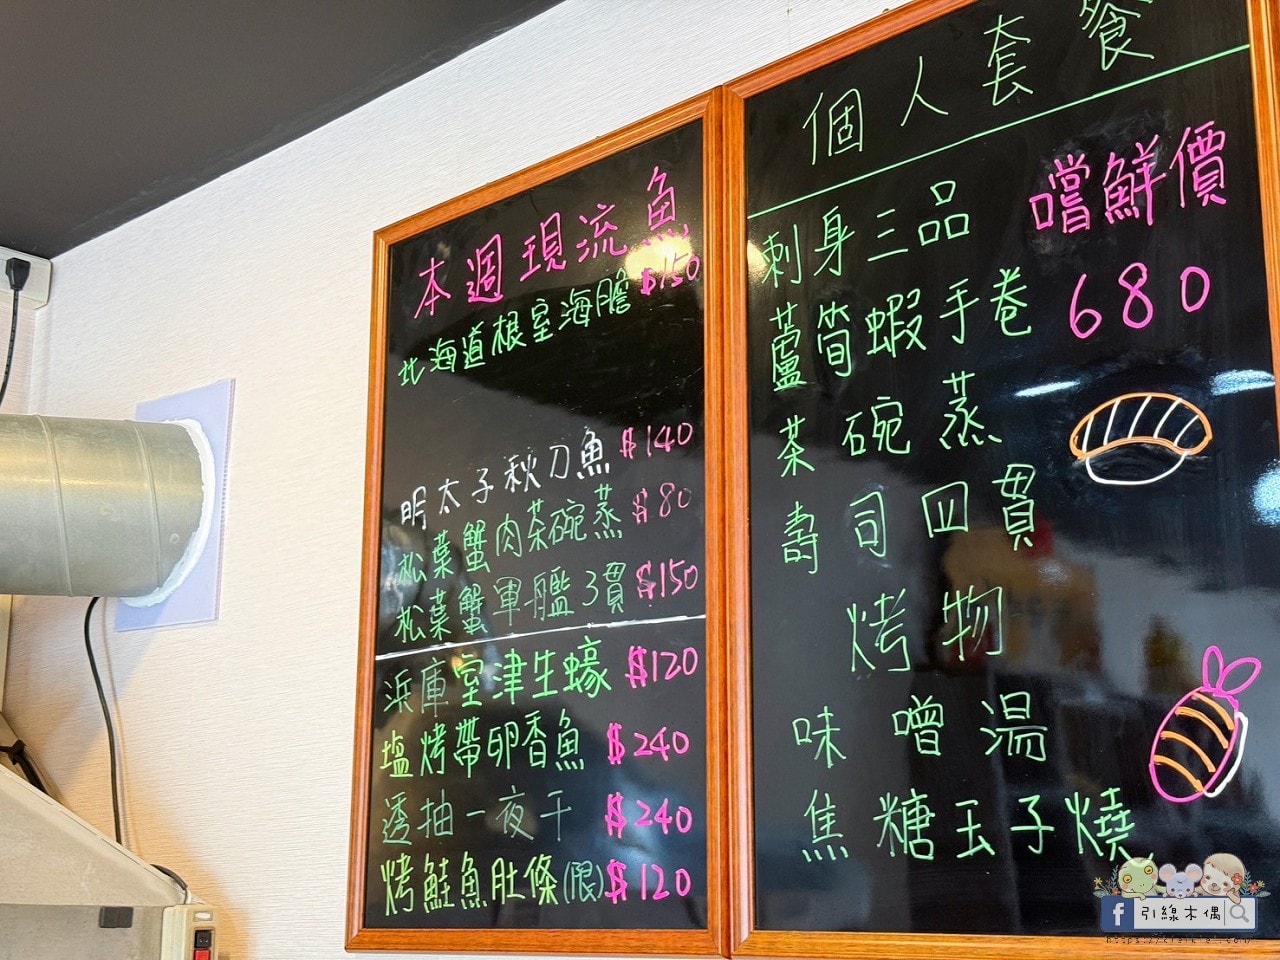 本週現流魚
北海道根室海膽 $150
明太子秋刀魚 $140
松葉蟹肉茶碗蒸 $80
松葉蟹軍艦3貫 $150
浜庫室津生蠔 $120
塩烤帶卵香魚 $240
透抽一夜干 $240
烤鮭魚肚條(限) $120
個人套餐
嚐鮮價
680
刺身三品
蘆筍蝦手卷
茶碗蒸
壽司四貫
烤物
味噌湯
焦糖玉子燒
f 引線木偶